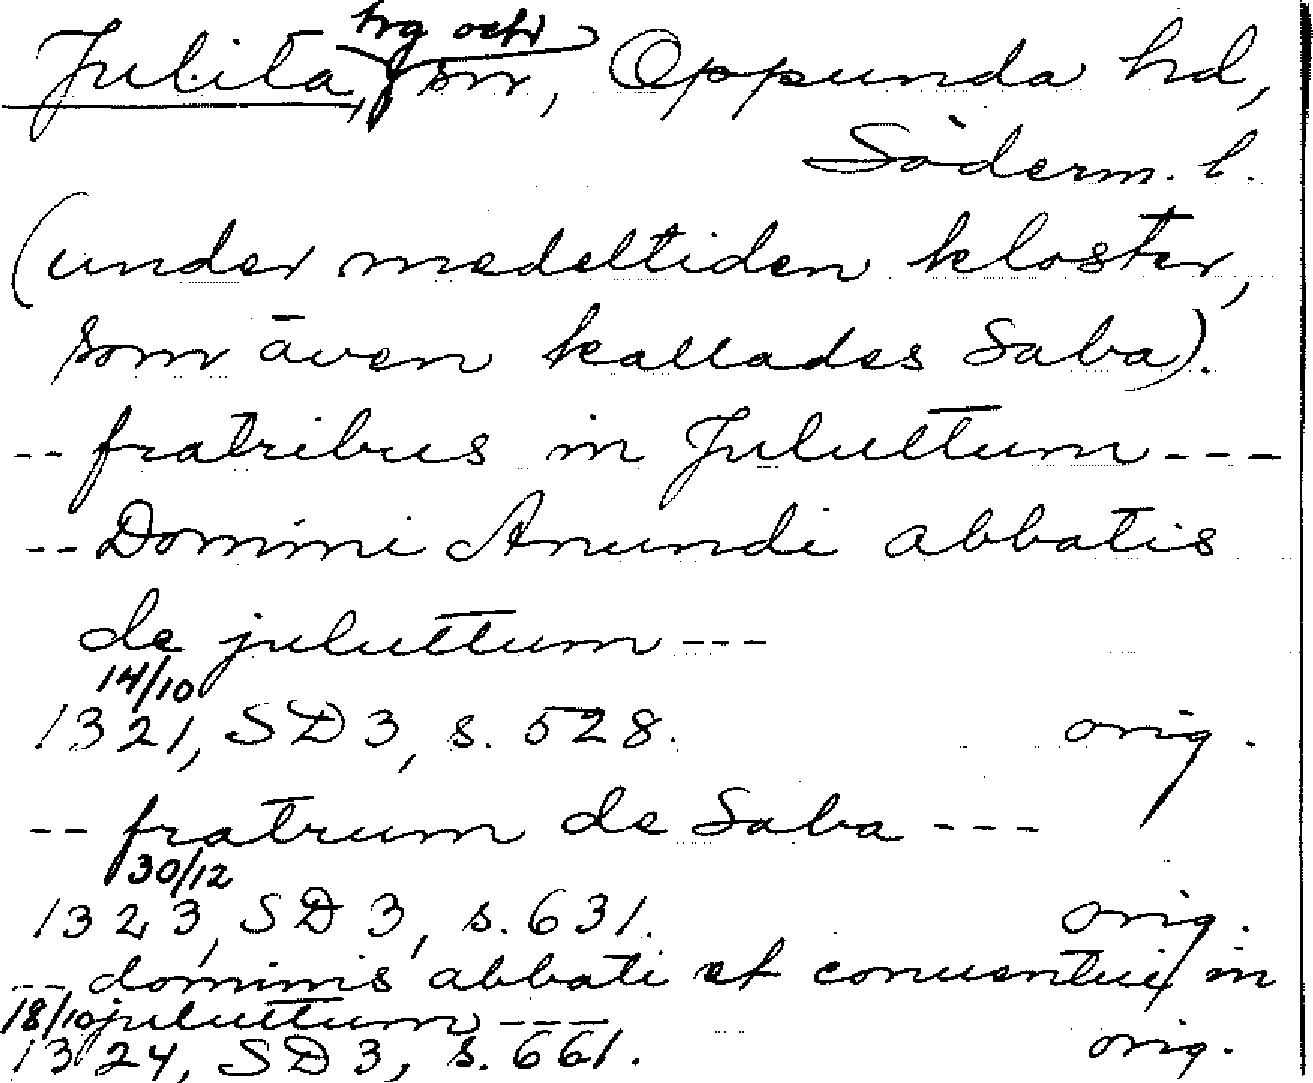 hrg och
Julita, sn, Oppunda hd,
Söderm. l.
(under medeltiden kloster,
som även kallades Saba).
-- fratribus in Julittum ---
-- Domini Anundi abbatis
de julittum ---
14/10
1321, SD 3, s. 528. orig.
-- fratrum de Saba ---
30/12
1323, SD 3, s. 631. orig.
-- dominis abbati et conuentui in
18/10 julittum ---
1324, SD 3, s. 661. orig.